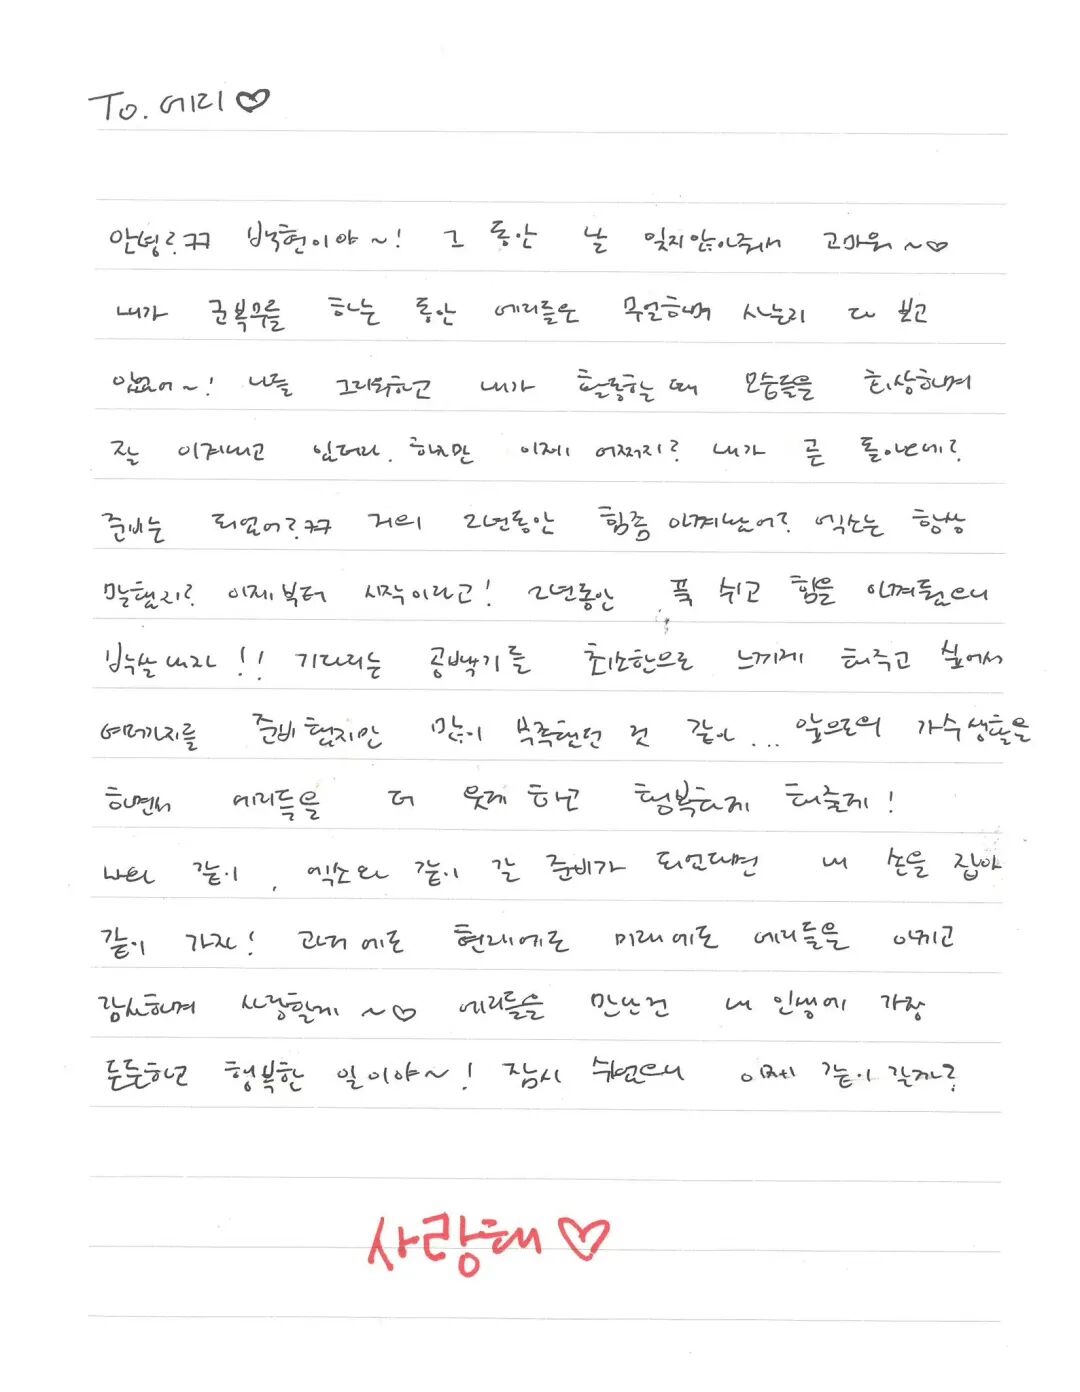 To. 에리♡
안녕? ㅋㅋ 백현이야~! 그 동안 날 잊지않아줘서 고마워~♡
내가 군복무를 하는 동안 에리들은 무얼하며 사는지 다 보고
있었어~! 나를 그리워하고 내가 활동할 때 모습들을 회상하며
잘 이겨내고 있더라. 하지만 이제 어쩌지? 내가 곧 돌아가네?
준비는 되었어? ㅋㅋ 거의 2년동안 힘좀 아껴놨어? 엑소는 항상
말했지? 이제부터 시작이라고! 2년동안 푹 쉬고 힘을 아껴뒀으니
박살내자!! 기다리는 공백기를 최소한으로 느끼게 해주고 싶어서
여러가지를 준비했지만 많이 부족했던 것 같아... 앞으로의 가수생활을
하면서 에리들을 더 웃게 하고 행복하게 해줄게!
나와 같이, 엑소와 같이 갈 준비가 되었다면 내 손을 잡아
같이 가자! 과거에도 현재에도 미래에도 에리들을 아끼고
감사하며 사랑할게~♡ 에리들을 만난건 내 인생에 가장
든든하고 행복한 일이야~! 잠시 쉬었으니 이제 같이 갈까?
사랑해♡